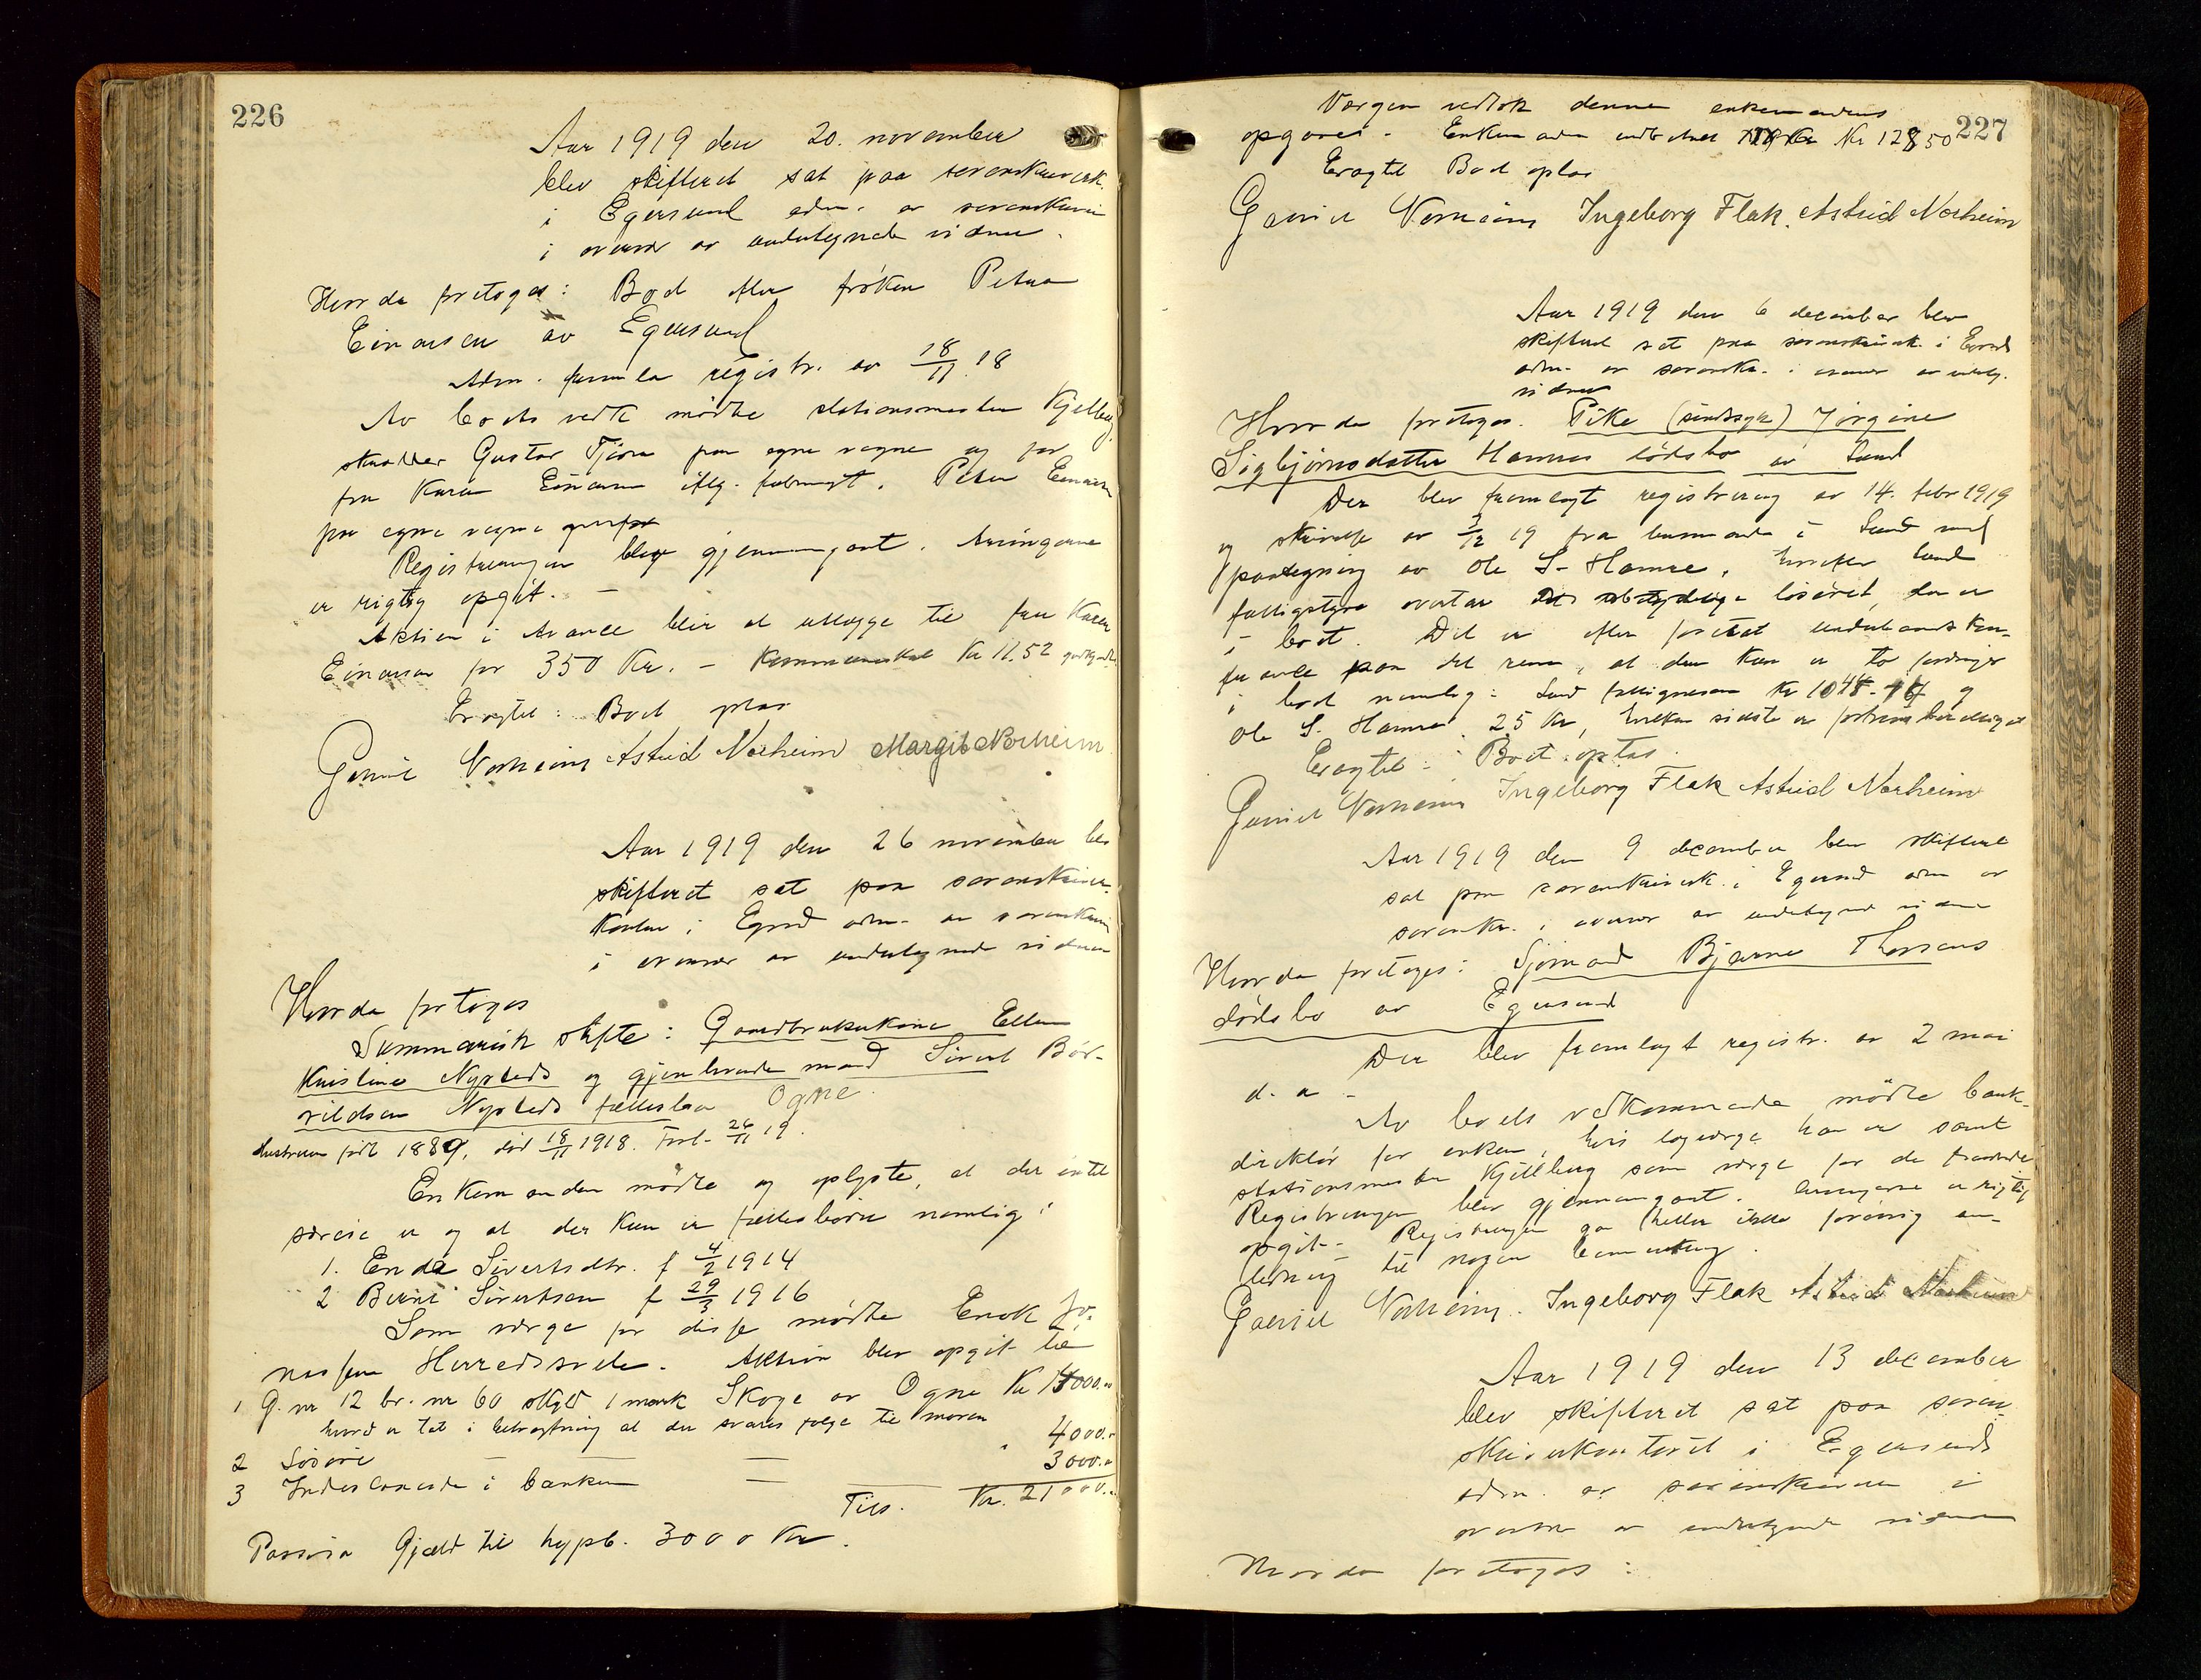 226
Aar 1919 den 20. november
blev skifteret sat paa sorenskriverk.
i Egersund adm. av sorenskriveren
i overvær av undertegnede vidner.
Hvorda foretoges: Boet efter frøken Petra
Einarsen av Egersund
Adm. fremla registr. av 18/11 18
Av boets vedk mødte stationsmester Kjelberg,
Gustav Tjörn paa egne vegne og for
fru Karen Einarsen iflg. fuldmagt. Peter Einarsen
paa egne vegne
Registreringen blev gjennemgaat. Arvingerne
er rigtig opgit. –
Aktien i Avance blir at utlægge til fru Karen
Einarsen for 350 Kr. – Kommuneskat Kr 11.52 godkjendt.
Eragtet: Boet optas
Gabriel Nordheim Astrid Norheim Margit Norheim
Aar 1919 den 26 november blev
skifteret sat paa sorenskriver-
kontoret i Egersund adm. av sorenskriveren
i overvær av undertegnede vidner
Hvorda foretoges
Summarisk skifte: Gaardbrukerkone Ellen
Kristine Nysteds og gjenlevende mand Sivert Bör-
rildsen Nysteds fællesbo Ogne.
Hustruen født 1889, død 18/11 1918. Forl. 26/11 19.
Enkemanden mødte og oplyste, at der intet
særeie er og at der kun er fællesbørn nemlig:
1. Enda Sivertsdtr. f 4/2 1914
2 Berni Sivertsen f 29/3 1916
Som verge for disse mødte Enok Jo-
nassen Herredsvela. Aktiva blev opgit til
1 G. nr 12 br. nr 60 skyld 1 mark Skoge av Ogne Kr 14000.00
hvord er tat i betragtning at der svares folge til moren
2 Løsøre — — " 4000.00
3 Indestaaende i banken — 3000.00
Tils. Kr. 21000.00
Passiva Gjæld til hypb. 3000 Kr.
227
Vergen vedtok denne enkemandens
opgaver. Enkemanden indbetalte Kr 128,50
Eragtet Boet optas
Gabriel Nordheim Ingeborg Flak. Astrid Norheim
Aar 1919 den 6 december blev
skifteret sat paa sorenskriverk. i Egersd
adm. av sorenskr. i overvær av underteg.
vidner
Hvorda foretoges. Pike (sindssyk) Jörgine
Sigbjørnsdatter Hamres dødsbo av Sand
Der blev fremlagt registrering av 14. febr 1919
og skrivelse av 3/12 19 fra lensmanden i Sand med
paategning av Ole S. Hamre, hvorefter Sand
fattigstyre overtar det ubetydelige løsøret, der er
i boet. Det er efter foretat undertaands kon-
ferance paa det rene, at der kun er to fordringer
i boet nemlig: Sand fattigvæsen Kr og
Ole S. Hamre 25 Kr, hvilken sidste er fortrinsberettiget
Eragtet: Boet optas.
Gabriel Nordheim Ingeborg Flak Astrid Norheim
Aar 1919 den 9 december blev skifteret
sat paa sorenskriverk. i Egersund adm av
sorenskr. i overvær av undertegnede vidner
Hvorda foretoges: Sjømand Bjarne Thorsens
dødsbo av Egersund
Der blev fremlagt registr. av 2 mai
d. a.
Av boets vedkommende mødte bank-
direktør for enken, hvis lagverge han er samt
stationsmester Kjellberg som verge for de fraværende
Registreringen blev gjennemgaat. Arvingerne er rigtig
opgit. Registreringen ga heller ikke forøvrig an-
ledning til nogen bemerkning.
Gabriel Nordheim. Ingeborg Flak Astrid Norheim
Aar 1919 den 13 december
blev skifteret sat paa soren-
skriverkontoret i Egersund
adm. av sorenskriveren i
overvær av undertegnede vidner
Hvorda foretoges: